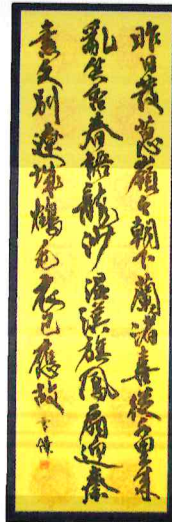 昨日發蔥嶺今朝下蘭渚喜從千里來
亂笑含春語龍沙濕漢旗鳳扇迎秦
素久別遼城鶴毛衣已應故